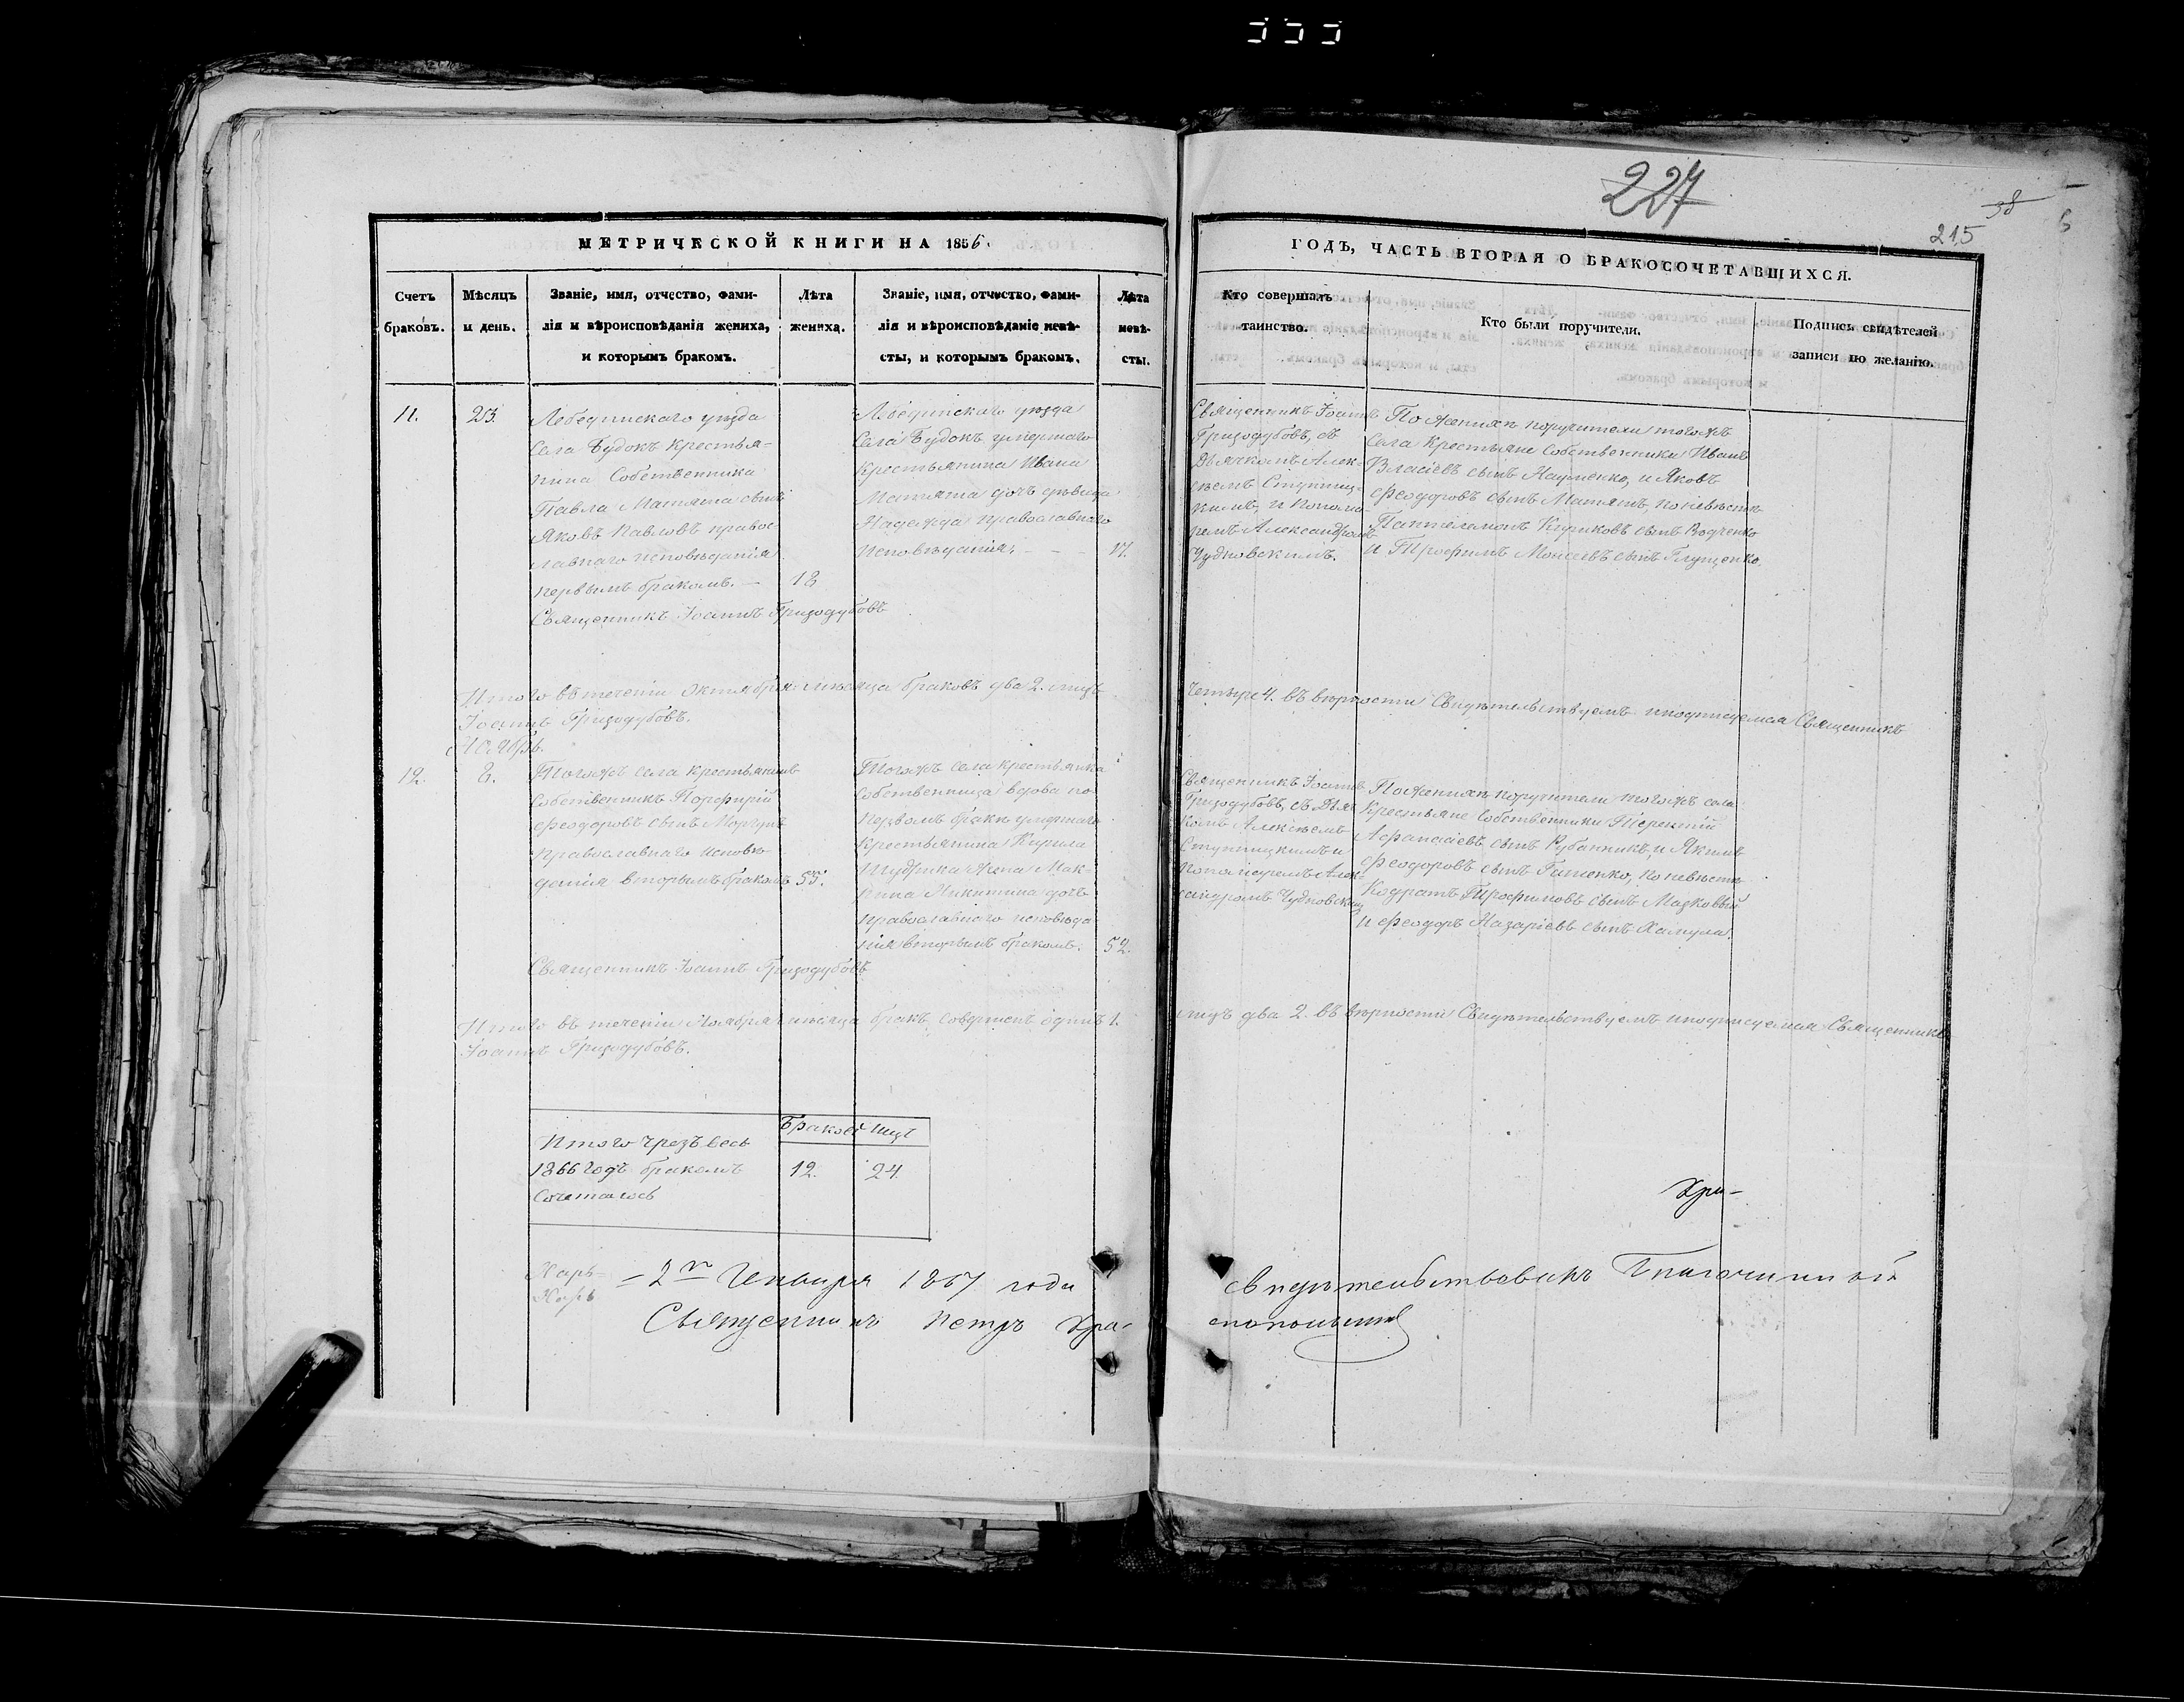 227
38
215
МЕТРИЧЕСКОЙ КНИГИ НА 1856.
ГОДЪ, ЧАСТЬ ВТОРАЯ О БРАКОСОЧЕТАВШИХСЯ.
Счетъ
браковъ.
Мѣсяцъ
и день.
Званіе, имя, отчество, фами-
лія и вѣроисповѣданія жениха,
и которымъ бракомъ.
Лѣта
жениха.
Званіе, имя, отчество, фами-
лія и вѣроисповѣданіе невѣ-
сты, и которымъ бракомъ.
Лѣта
невѣ-
сты.
Кто совершалъ
таинство.
Кто были поручители.
Подпись свидѣтелей
записи по желанію.
11.
23.
Лебединскаго уѣзда
Села Будокъ Крестья-
нина Собственника
Павла Матяша сынъ
Яковъ Павловъ право-
лавнаго исповѣданія
первымъ бракомъ. —
18
Священникъ Іоаннъ Гризодубовъ
Лебединскаго уѣзда
Села Будокъ умершаго
Крестьянина Ивана
дочь дѣвица
Надежда православнаго
исповѣданія. — —
17.
Священникъ Іоаннъ
Гризодубовъ, съ
Дьячкомъ Алек-
сѣемъ Ступниц-
кимъ, и Понома-
ремъ Александромъ
Чудновскимъ.
По женихѣ поручители тогожъ
Села Крестьяне Собственники Иванъ
Власіевъ сынъ Науменко, и Яковъ
Феодоровъ сынъ Матяшъ, по невѣстѣ
Пантелемонъ Кириковъ сынъ
и Трофимъ Моисеевъ сынъ Глущенко.
Итого въ теченіи Октября мѣсяца браковъ два 2. лицъ
четыре 4. въ вѣрности Свидѣтельствуемъ и подписуемся Священникъ
Іоаннъ Гризодубовъ.
Ноябрь.
12.
8.
Тогожъ села крестьянинъ
Собственникъ Порфирій
Феодоровъ сынъ Моргунъ
православнаго исповѣ-
данія вторымъ бракомъ
55.
Священникъ Іоаннъ Гризодубовъ
Тогожъ села крестьянка
Собственница вдова по
первомъ бракѣ умершаго
Крестьянина Кирила
жена Мак-
рина Никитина дочь
православнаго исповѣда-
нія вторымъ бракомъ.
52.
Священникъ Іоаннъ
Гризодубовъ, съ Дьяч-
комъ Алексѣемъ
Ступницкимъ и
Пономаремъ Алек-
сандромъ Чудновским
По женихѣ поручители тогожъ села
Крестьяне Собственники Терентій
Афанасіевъ сынъ Рубанникъ, и Якимъ
Феодоровъ сынъ по невѣстѣ
Кодратъ Трофимовъ сынъ
и Феодоръ Назаріевъ сынъ Хамула.
Итого въ теченіи Ноября мѣсяца бракъ совершенъ одинъ 1.
лицъ два 2. въ вѣрности Свидѣтельствуемъ и подписуемся Священникъ
Іоаннъ Гризодубовъ.
Браковъ лицъ
Итого чрезъ весь
1866 годъ бракомъ
Сочеталось
12.
24.
2го Генваря 1867 года
свидѣтельствовалъ Благочинный
Священникъ Петръ